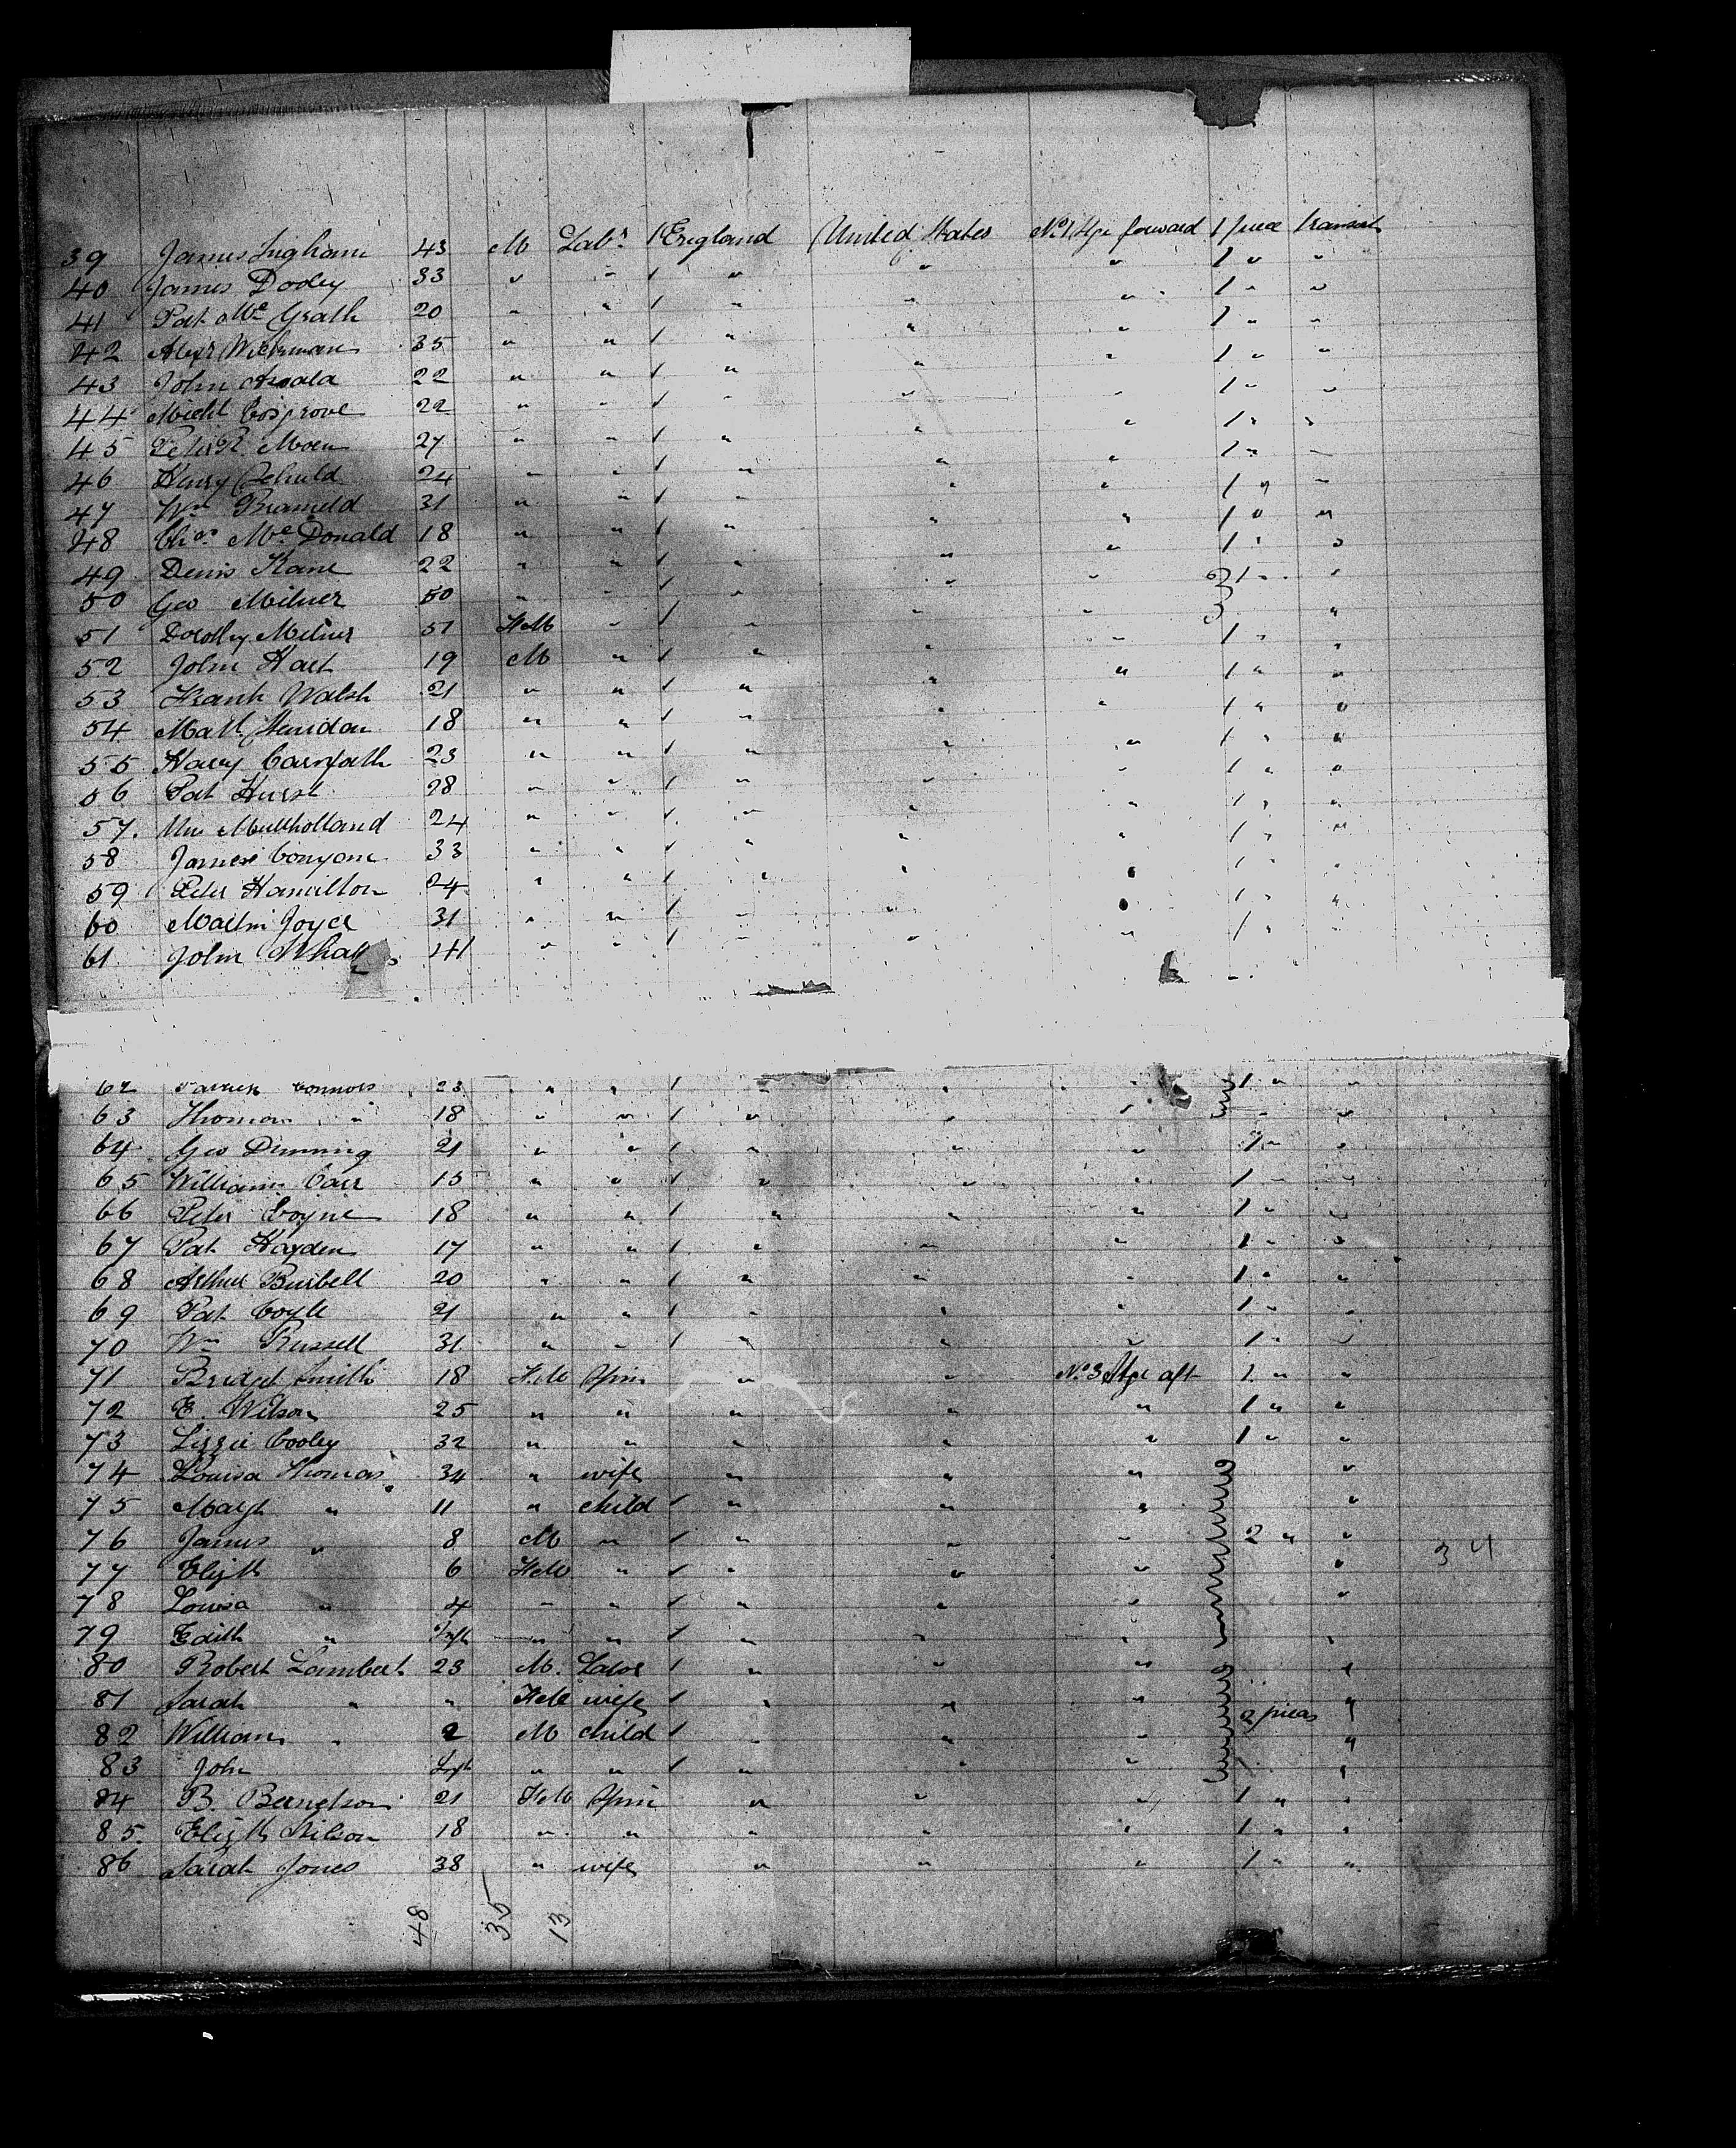 39 James Ingham 43 M Labr 1 England United States No 1 Stge forward 1 piece transit
40 James Dooley 33 " " 1 " " " 1 " "
41 Pat Mc Grath 20 " " 1 " " " 1 " "
42 Alexr Wickman 35 " " 1 " " " 1 " "
43 John 22 " " 1 " " " 1 " "
44 Michl Cosgrove 22 " " 1 " " " 1 " "
45 Peter R. Moen 27 " " 1 " " " 1 " "
46 Henry Schuld 24 " " 1 " " " 1 " "
47 Wm Brameld 31 " " 1 " " " 1 " "
48 Chas Mc Donald 18 " " 1 " " " 1 " "
49 Denis Kane 22 " " 1 " " " 1 " "
50 Geo Milner 50 " " 1 " " " 1 " "
51 Dorothy Milner 51 FeM " 1 " " " "
52 John Hart 19 M " 1 " " " 1 " "
53 Frank Walsh 21 " " 1 " " " 1 " "
54 Matt Sheridan 18 " " 1 " " " 1 " "
55 Harry 23 " " 1 " " " 1 " "
56 Pat Hurst 28 " " 1 " " " 1 " "
57. Wm Mullholland 24 " " 1 " " " 1 " "
58 James 33 " " 1 " " " 1 " "
59 Peter Hamilton 24 " " 1 " " " 1 " "
60 Martin Joyce 31 " " 1 " " " 1 " "
61 John 41 " " 1 " " " 1 " "
62 Patrick Connors 23 " " 1 " " " 1 " "
63 Thomas " 18 " " 1 " " " " "
64 Geo Dimming 21 " " 1 " " " 1 " "
65 William Carr 15 " " 1 " " " 1 " "
66 Peter Coyne 18 " " 1 " " " 1 " "
67 Pat Hayden 17 " " 1 " " " 1 " "
68 Arthur Burbell 20 " " 1 " " " 1 " "
69 Pat Coyle 21 " " 1 " " " 1 " "
70 Wm Russell 31 " " 1 " " " 1 " "
71 Bridget Smith 18 FeM Spin " " No 3 Stge aft 1 " "
72 E. Wilson 25 " " " " " 1 " "
73 Lizzie Cooley 32 " " " " " 1 " "
74 Louisa Thomas 34 " wife " " " "
75 Margt " 11 " child 1 " " " "
76 James " 8 M " 1 " " " 2 " "
77 Elizth 6 FeM " 1 " " " "
78 Louisa " 4 " " 1 " " " "
79 Edith " Inft " " 1 " " " "
80 Robert Lambert 23 M. Labor 1 " " " "
81 Sarah " " FeM wife 1 " " " "
82 William " 2 M child 1 " " " 2 pieces "
83 John Inft " " 1 " " " "
84 B. Berngtson 21 FeM Spin " " " 1 " "
85. Elizth Nilson 18 " " " " " 1 " "
86 Sarah Jones 38 " wife " " " 1 " "
34
48 35 13